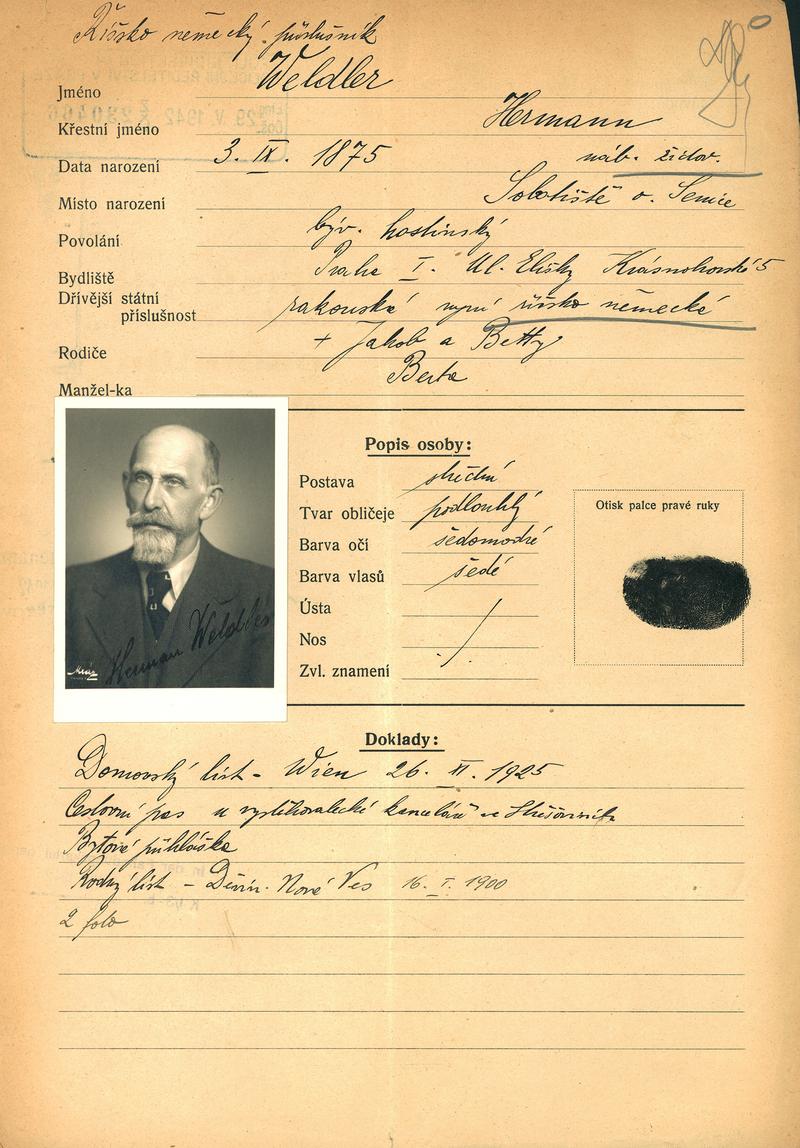 Říšsko německý příslušník
Jméno Weldler
Křestní jméno Hermann
Data narození 3. IX. 1875 náb. židov.
Místo narození Sobotiště o. Senice
Povolání býv. hostinský
Bydliště Praha I. Ul. Elišky Krásnohorské 5
Dřívější státní
příslušnost rakouská nyní říšsko německá
Rodiče + Jakob a Betty
Manžel-ka Berta
Popis osoby:
Postava střední
Tvar obličeje podlouhlý
Barva očí šedomodré
Barva vlasů šedé
Ústa
Nos
Zvl. znamení
Otisk palce pravé ruky
Herman Weldler
Doklady:
Domovský list - Wien 26. XI. 1925
Cestovní pas u vystěhovalecké kanceláře ve Střešovicích
Bytové přihláška
Rodný list - Děvín. Nové Ves 16. I. 1900
2 foto